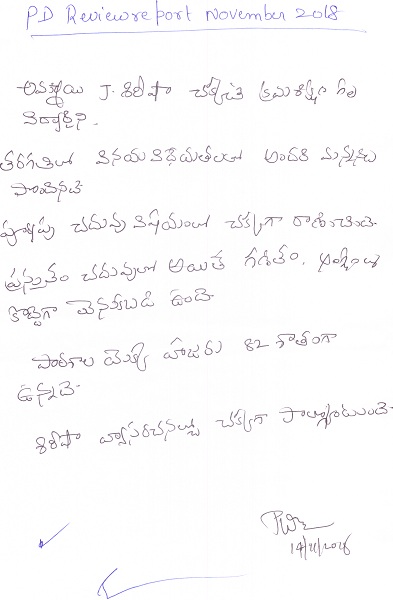 PD Review report November 2018
అమ్మాయి J. శిరీషా చక్కటి క్రమశిక్షణ గల
విద్యార్థిని.
తరగతిలో వినయ విధేయతలలో అందరి మన్నను
పొందినది
పూర్వపు చదువు విషయంలో చక్కగా రాణించింది
ప్రస్తుతం చదువులో అయితే గణితం, ఆంగ్లం
కొద్దిగా వెనుకబడి ఉంది
పాఠశాల యొక్క హాజరు 82 శాతంగా
ఉన్నది
శిరీషా వ్యాసరచనల్లో చక్కగా పాల్గొంటుంది
14/11/2018